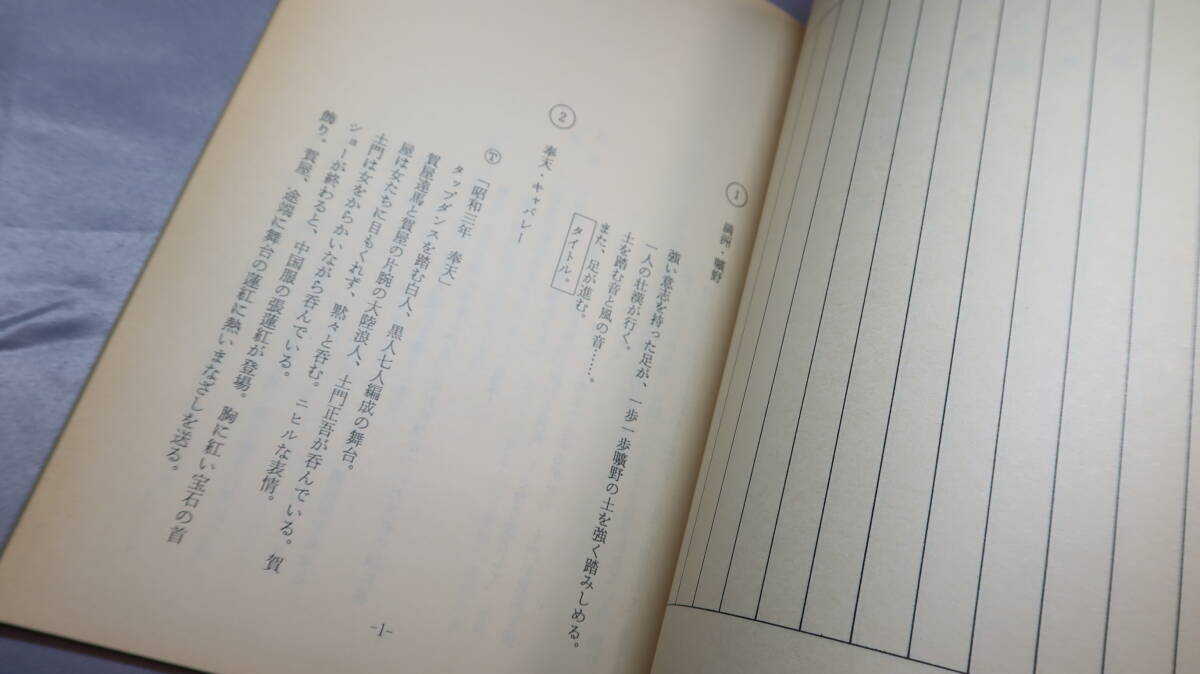 ① 満洲・曠野
強い意志を持った足が、一歩一歩曠野の土を強く踏みしめる。
一人の壮漢が行く。
土を踏む音と風の音……。
また、足が進む。
タイトル。
② 奉天・キャバレー
Ⓣ「昭和三年 奉天」
タップダンスを踏む白人、黒人七人編成の舞台。
賀屋達馬と賀屋の片腕の大陸浪人、土門正吾が呑んでいる。賀
屋は女たちに目もくれず、黙々と呑む。ニヒルな表情。
土門は女をからかいながら呑んでいる。
ショーが終わると、中国服の張蓮紅が登場。胸に紅い宝石の首
飾り。賀屋、途端に舞台の蓮紅に熱いまなざしを送る。
-1-